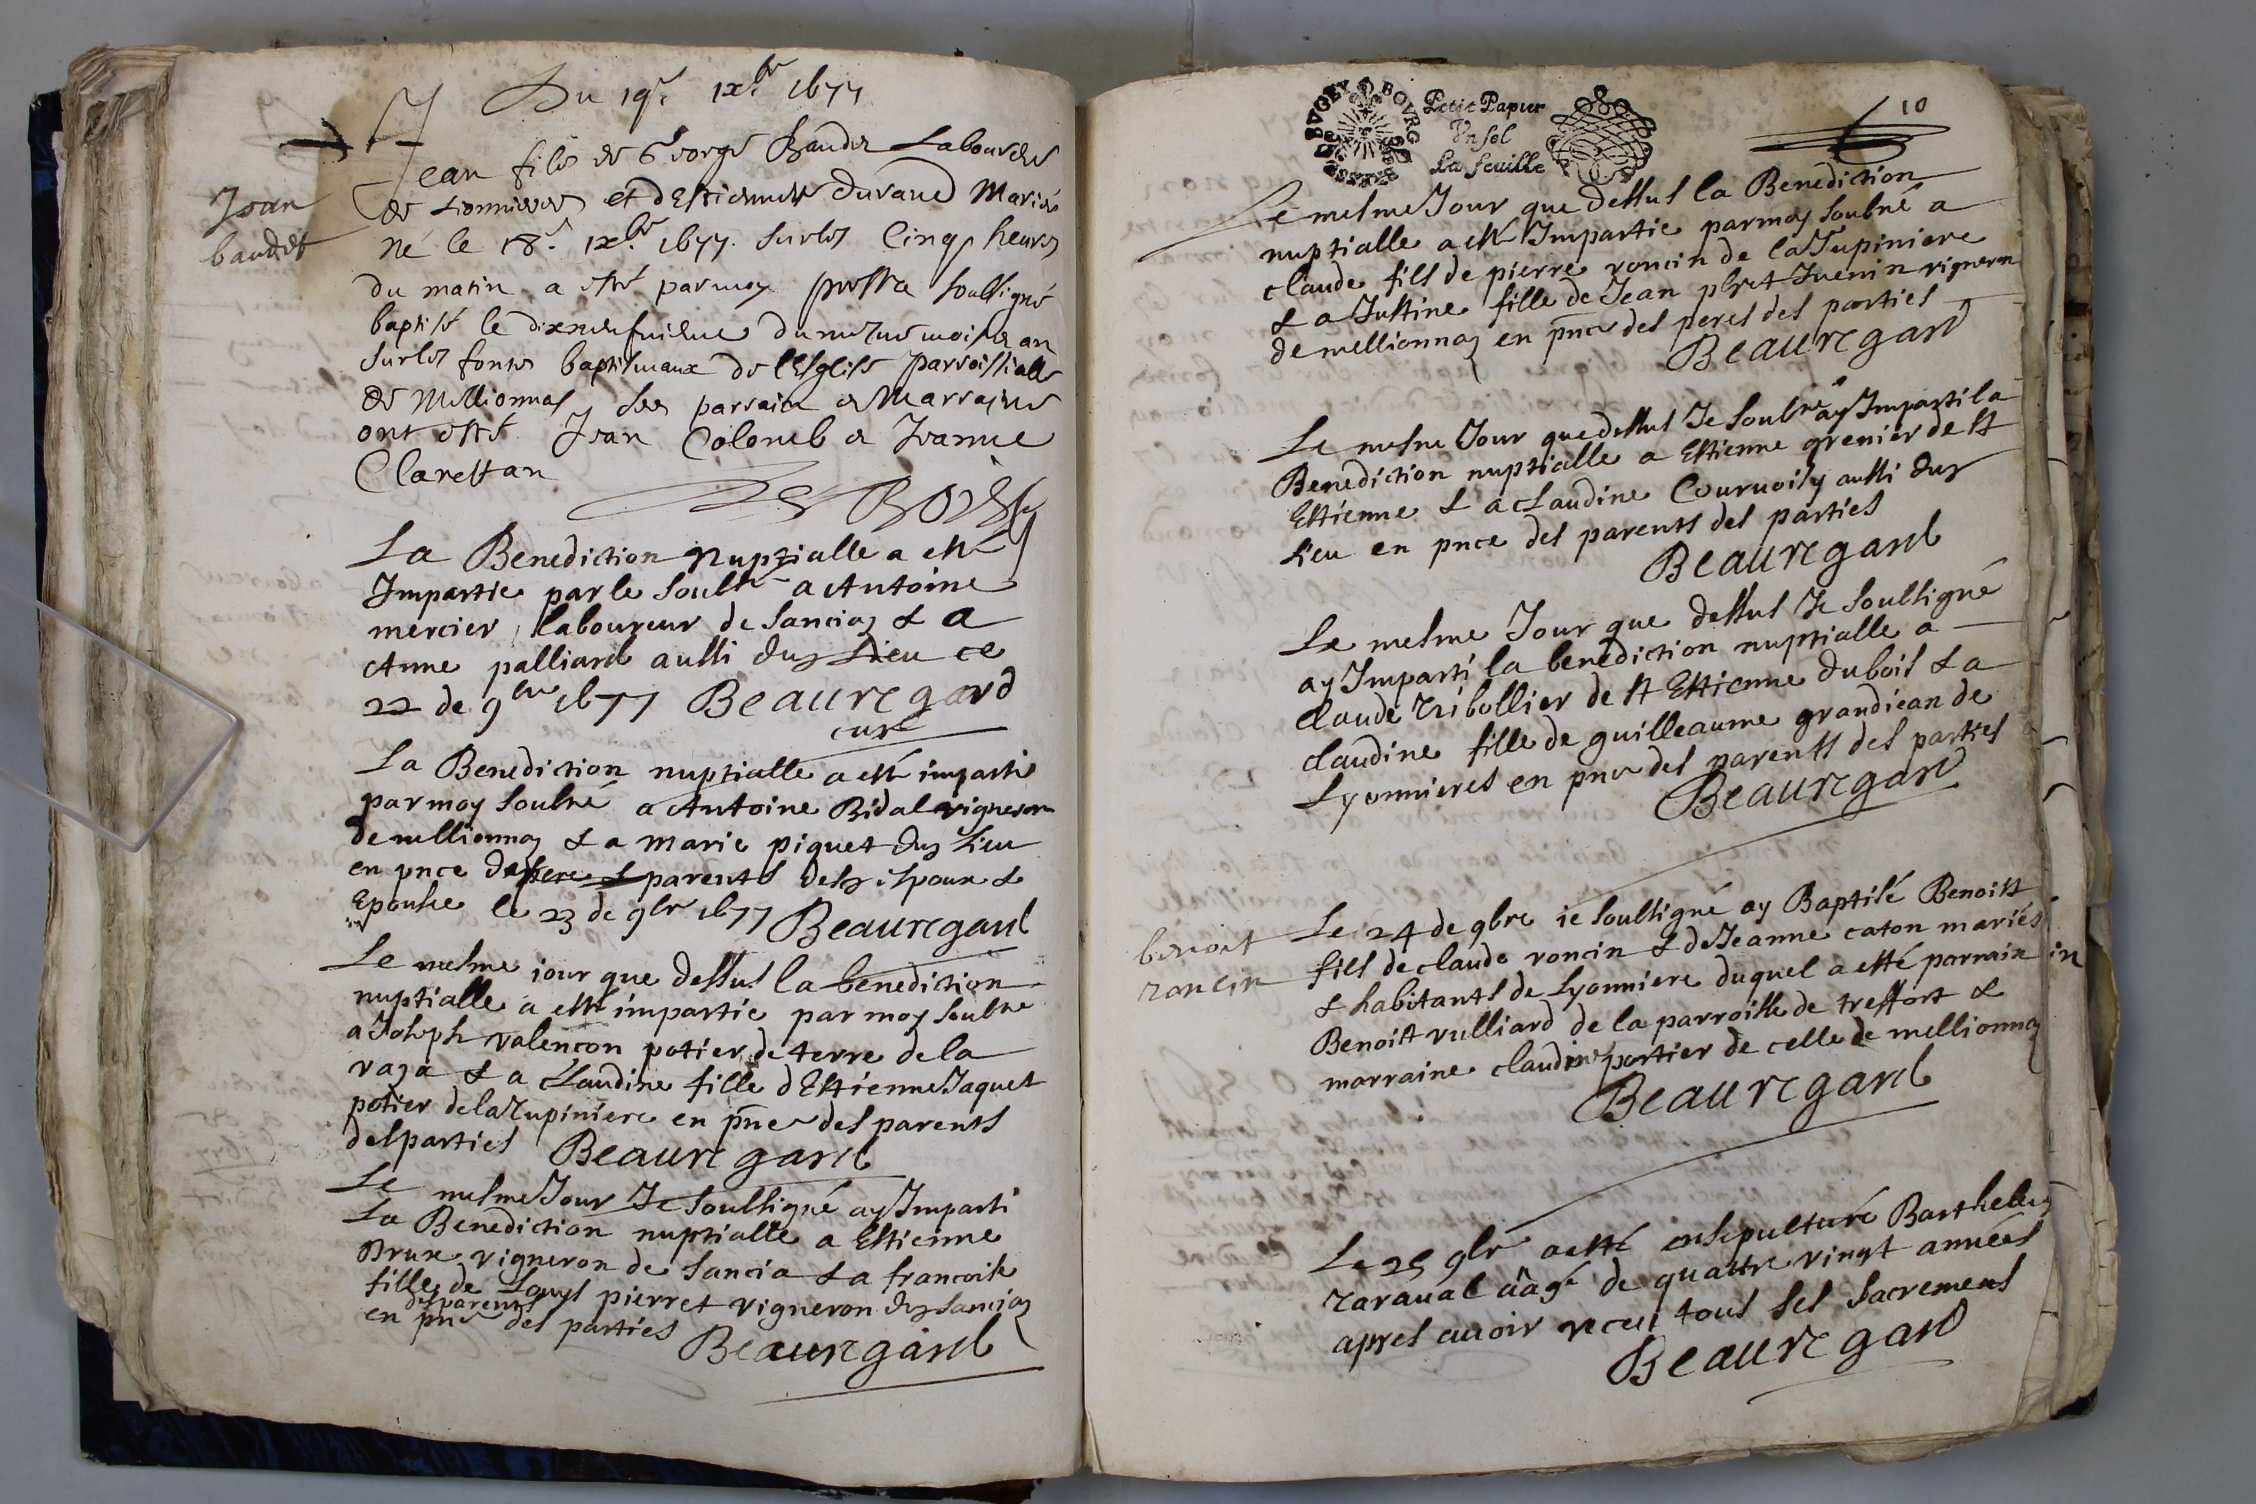 Du 19e. ixbre 1677
Jean
baudet
Jean fils de George Baudet Laboureur
de Lionnieres et d'Estiennette Durand Mariés
né le 18e. ixbre 1677 sur les Cinq heures
du matin a esté par moy prestre soussigné
baptisé le dixneufvieme du mesme mois & an
sur les fonts baptismaux de l'Esglise parroissialle
de Millionnas Ses parrain & Marraine
ont esté Jean Colomb & Jeanne
Clarettan
La Benediction nuptialle a esté
Impartie par le soubné a Antoine
mercier laboureur de Sancia & a
Anne palliard aussi dud Lieu ce
22 de 9bre 1677 Beauregard
curé
La Benediction nuptialle a esté impartie
par moy soubné a Antoine Bidal vigneron
de mellionnay & a marie piquet dud Lieu
en pnce parents desd espoux &
Epouse le 23 de 9bre 1677 Beauregard
Le mesme iour que dessus la benediction
nuptialle a esté impartie par moy soubné
a Joseph valençon potier de terre de la
raza & a Claudine fille d'Estienne Jaquet
potier de la Tupiniere en pnce des parents
des parties Beauregard
Le mesme Jour Je soussigné ay Imparti
La Benediction nuptialle a Estienne
Brun vigneron de Sancia & a francoise
fille de Louys pierret vigneron dud Sancia
des parents
en pnce des parties Beauregard
BVGEY BOVRG
Petit Papier
Vn sol
La feuille
10
Le mesme Jour que dessus la Benediction
nuptialle a esté Impartie par moy soubné a
claude fils de pierre roncin de la Tupiniere
& a Justine fille de Jean pbrt Juenin vigneron
de mellionnay en pnce des peres des parties
Beauregard
Le mesme Jour que dessus Je soubné ay Imparti la
Benediction nuptialle a Estienne grenier de St
Estienne & a claudine Cournoisy aussi dud
Lieu en pnce des parents des parties
Beauregard
Le mesme Jour que dessus Je soussigné
ay Imparti la benediction nuptialle a
Claude Tribollier de St Estienne du bois & a
claudine fille de guilleaume grandiean de
Lyonnieres en pnce des parents des parties
Beauregard
benoit
ronçin
Le 24 de 9bre ie soussigné ay Baptisé Benoist
fils de claude roncin & de Jeanne caton mariés
& habitants de Lyonniere duquel a esté parrain
Benoist vulliard de la parroisse de treffort &
marraine claudine portier de celle de mellionnay
Beauregard
Le 25 9bre a esté ensepulturé Barthelemy
raraual âagé de quattre vingt années
apres auoir receu tous ses sacremens
Beauregard